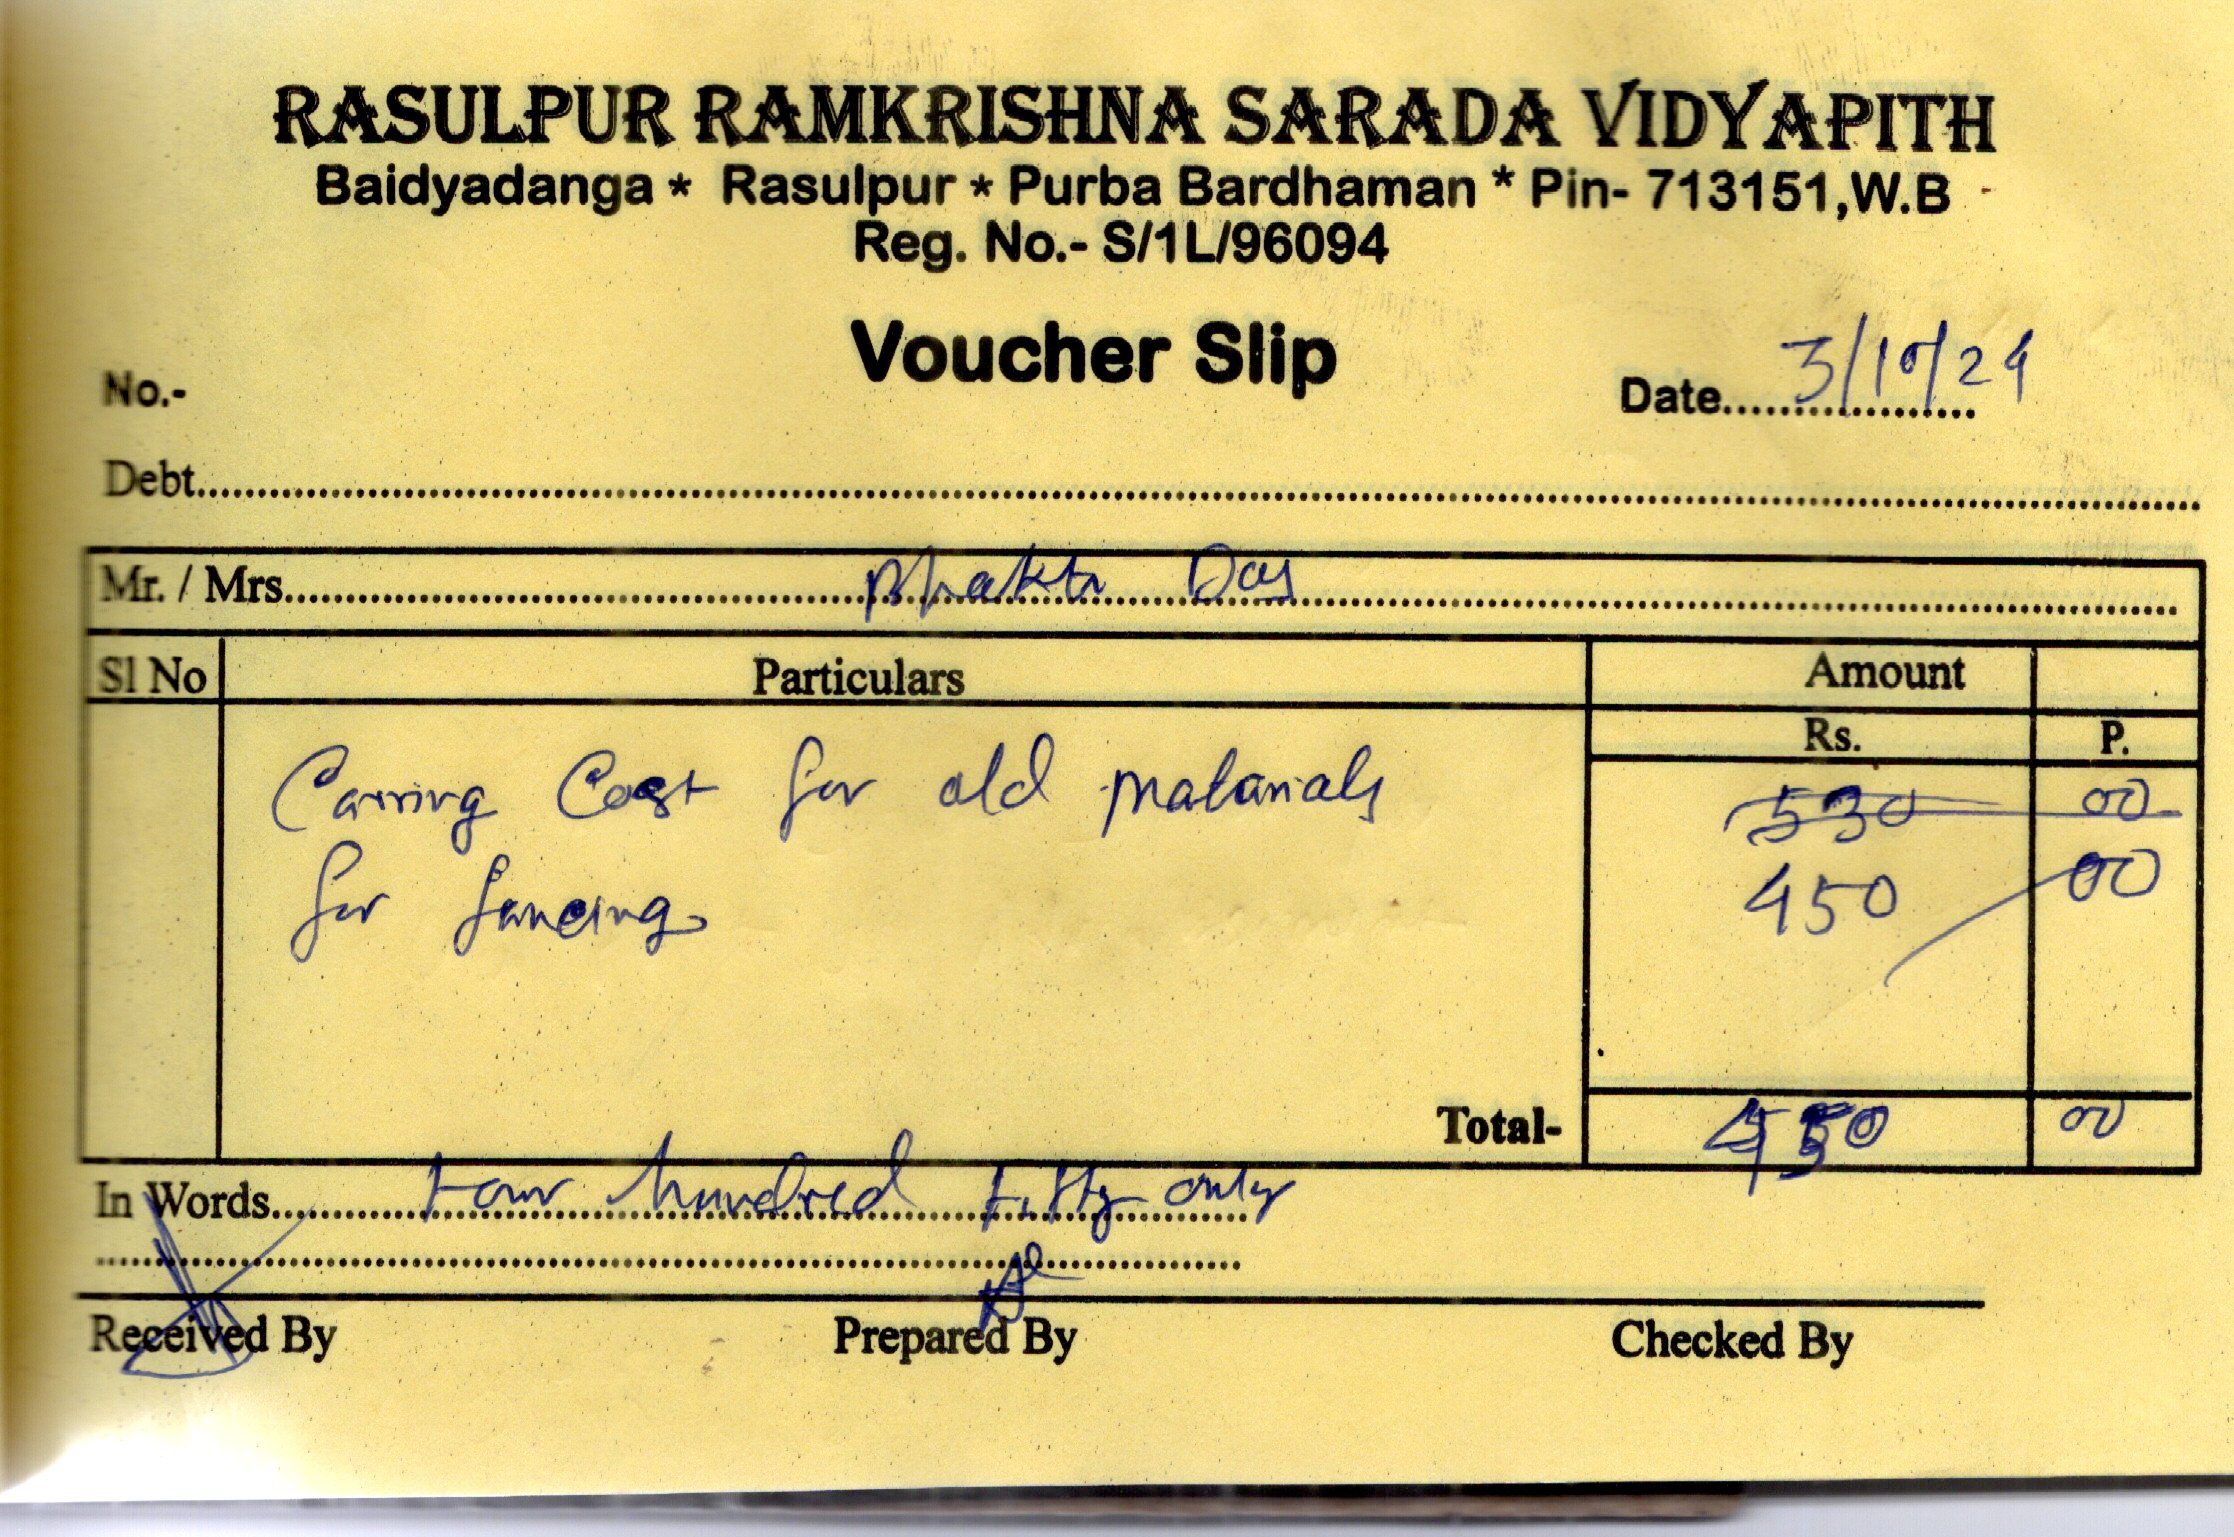 RASULPUR RAMKRISHNA SARADA VIDYAPITH
Baidyadanga * Rasulpur * Purba Bardhaman * Pin- 713151,W.B
Reg. No.- S/1L/96094
Voucher Slip
No.-
Date 3/10/24
Debt
Mr. / Mrs. Bhakta Das
Sl No Particulars Amount
Rs. P.
Carring Cost for old matarials 530 00
for fencing 450 00
Total- 450 00
In Words Four hundred Fifty only
Received By Prepared By Checked By